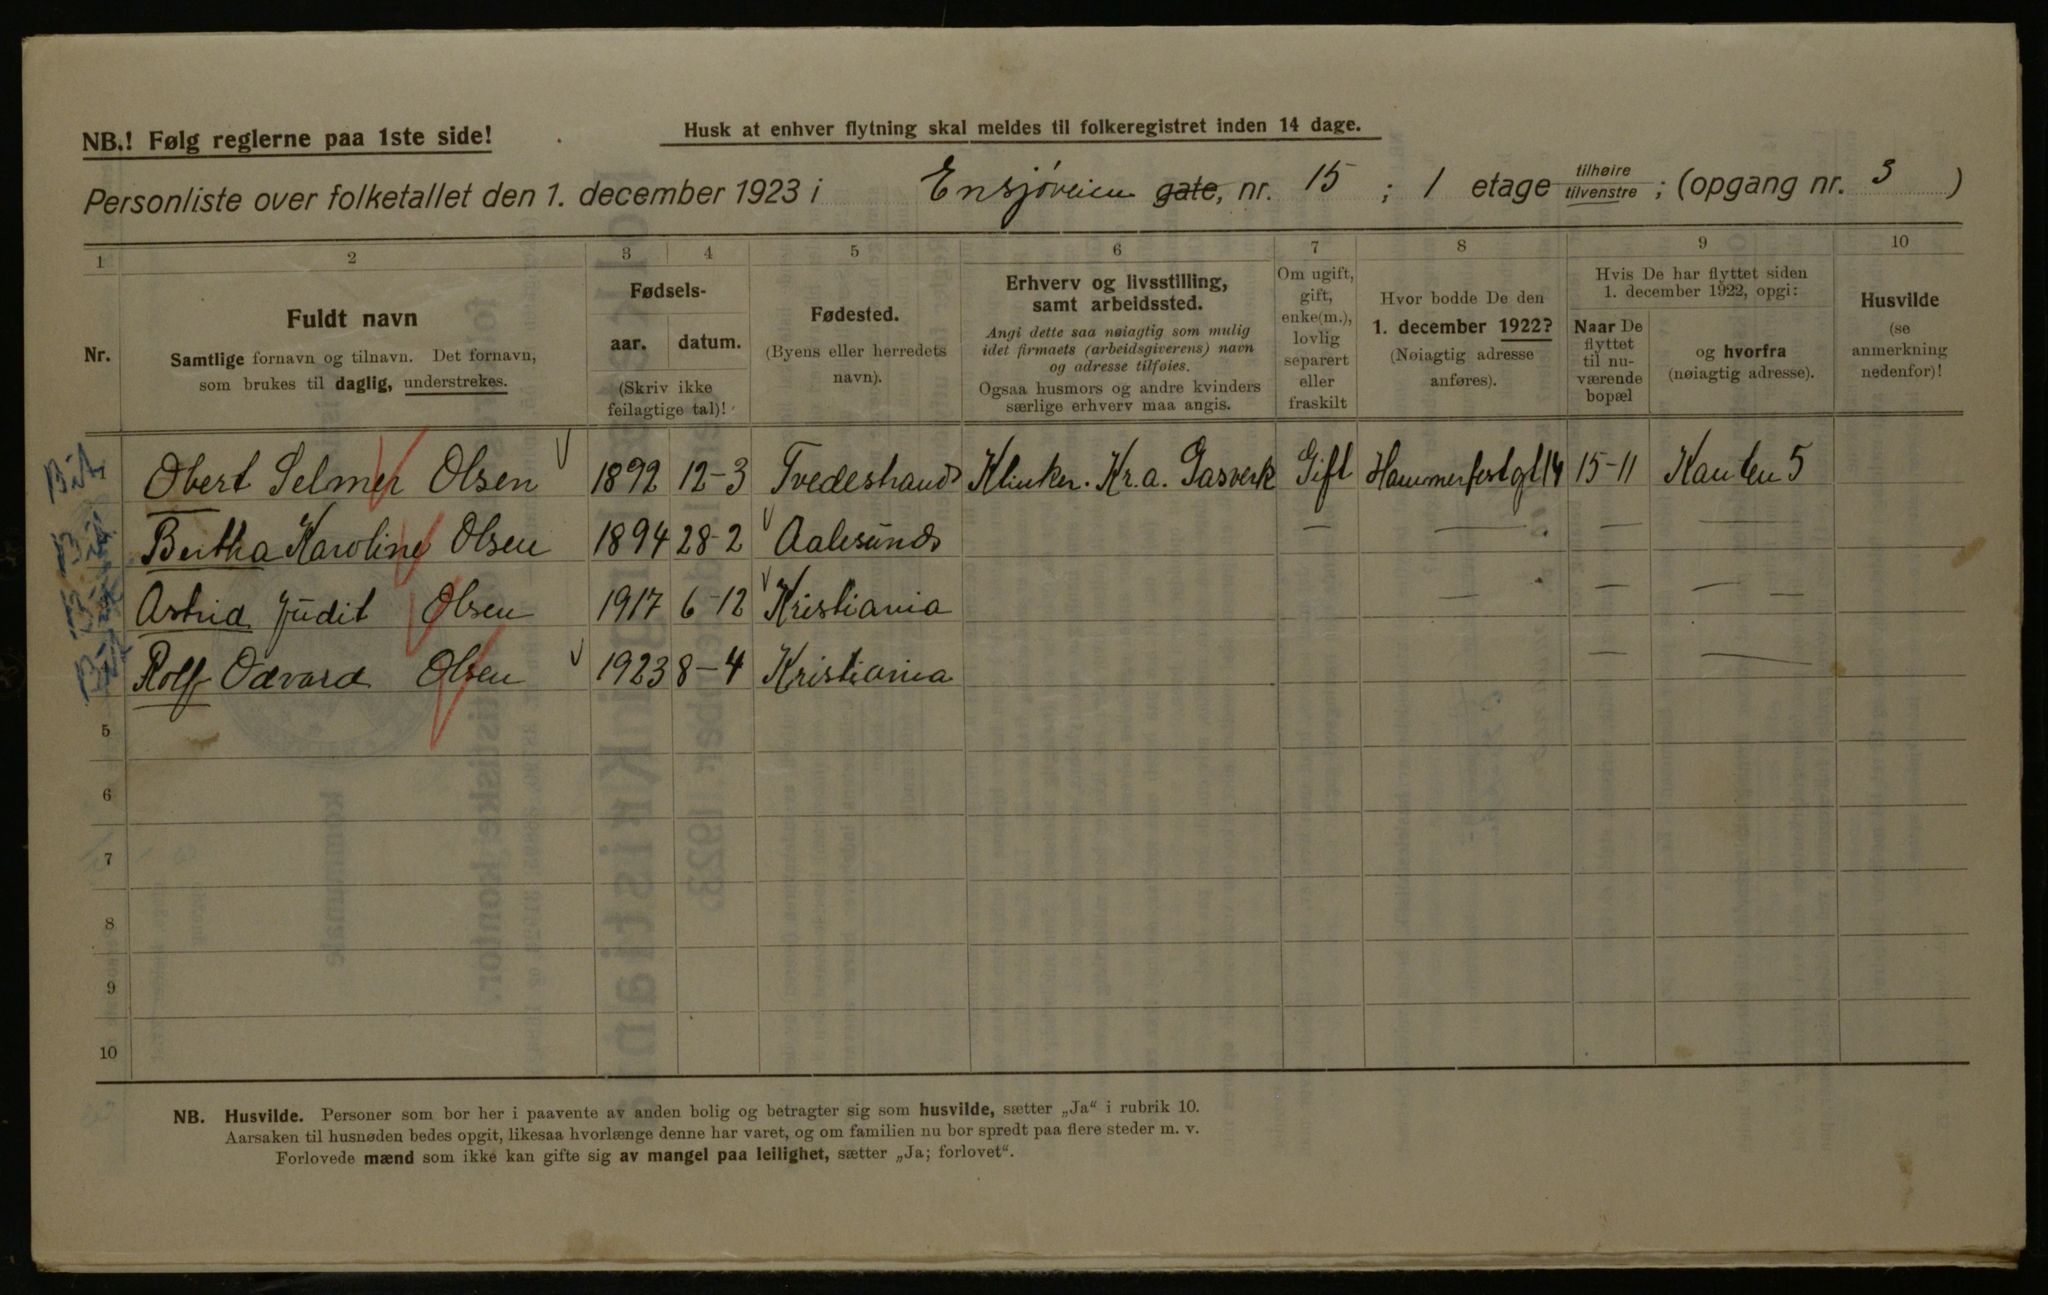 NB.! Følg reglerne paa 1ste side!
Husk at enhver flytning skal meldes til folkeregistret inden 14 dage.
Personliste over folketallet den 1. december 1923 i Ensjøveien gate, nr. 15 ; 1 etage tilhøire tilvenstre ; (opgang nr. 3 )
1 2 3 4 5 6 7 8 9 10
Nr.
Fuldt navn
Samtlige fornavn og tilnavn. Det fornavn,
som brukes til daglig, understrekes.
Fødsels-
aar. datum.
(Skriv ikke
feilagtige tal)!
Fødested.
(Byens eller herredets
navn).
Erhverv og livsstilling,
samt arbeidssted.
Angi dette saa nøiagtig som mulig
idet firmaets (arbeidsgiverens) navn
og adresse tilføies.
Ogsaa husmors og andre kvinders
særlige erhverv maa angis.
Om ugift,
gift,
enke(m.),
lovlig
separert
eller
fraskilt
Hvor bodde De den
1. december 1922?
(Nøiagtig adresse
anføres).
Hvis De har flyttet siden
1. december 1922, opgi:
Naar De
flyttet
til nu-
værende
bopæl
og hvorfra
(nøiagtig adresse).
Husvilde
(se
anmerkning
nedenfor)!
Obert Selmer Olsen 1892 12-3 Tvedestrand Klinker. Kr.a. Gasverk Gift Hammerfestgt 14 15-11 Kanten 5
Bertha Karoline Olsen 1894 28-2 Aalesund — — — —
Astrid Judit Olsen 1917 6-12 Kristiania — — — —
Rolf Odvard Olsen 1923 8-4 Kristiania — —
5
6
7
8
9
10
NB. Husvilde. Personer som bor her i paavente av anden bolig og betragter sig som husvilde, sætter „Ja“ i rubrik 10.
Aarsaken til husnøden bedes opgit, likesaa hvorlænge denne har varet, og om familien nu bor spredt paa flere steder m. v.
Forlovede mænd som ikke kan gifte sig av mangel paa leilighet, sætter „Ja; forlovet“.